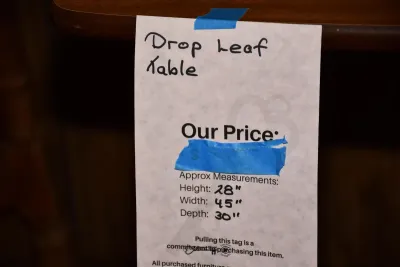 Drop Leaf
Table
Our Price:
Approx Measurements:
Height: 28"
Width: 45"
Depth: 30"
Pulling this tag is a
commitment to purchasing this item.
All purchased furniture